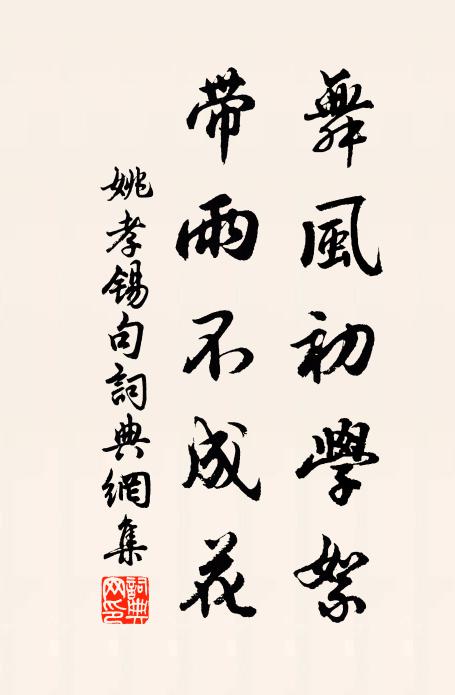 舞風初學絮
帶雨不成花
姚孝錫句詞典網集
詞典網印